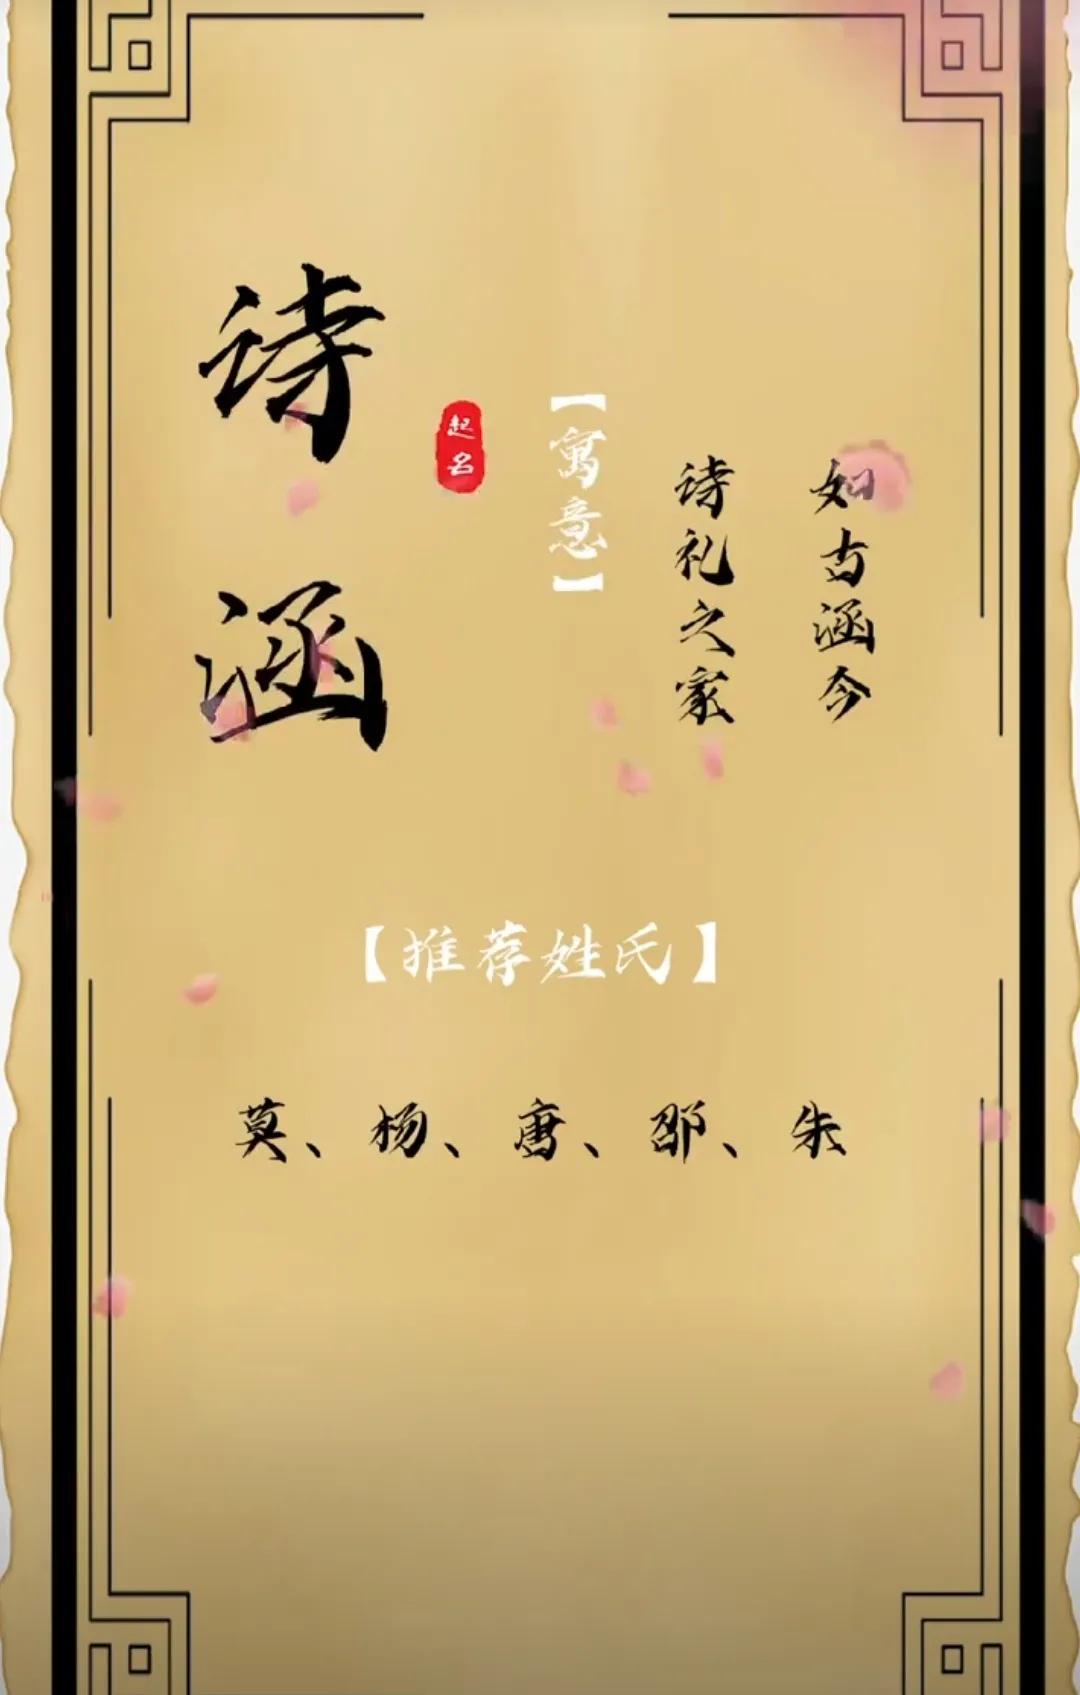 诗涵
起名
【寓意】
诗礼之家
如古涵今
【推荐姓氏】
莫、杨、唐、邵、朱